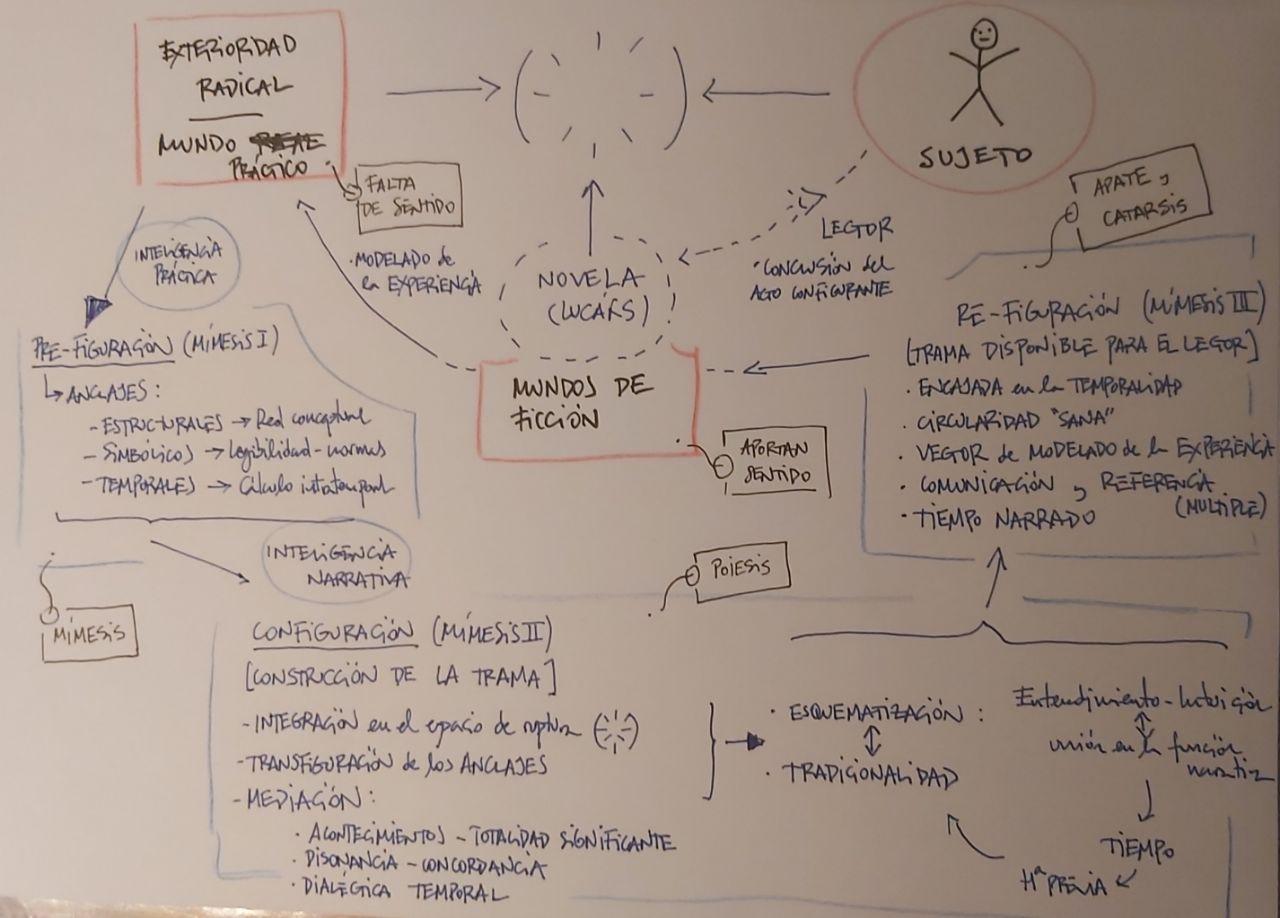 EXTERIORIDAD
RADICAL
MUNDO
PRÁCTICO
FALTA
DE SENTIDO
SUJETO
APATE y
CATARSIS
INTELIGENCIA
PRÁCTICA
· MODELADO de
la EXPERIENCIA
NOVELA
(LUCÁKS)
LECTOR
· CONCLUSIÓN del
ACTO CONFIGURANTE
MUNDOS DE
FICCIÓN
APORTAN
SENTIDO
PRE-FIGURACIÓN (MÍMESIS I)
↳ ANCLAJES:
- ESTRUCTURALES → Red conceptual
- SIMBÓLICOS → Legibilidad - normas
- TEMPORALES → Cálculo intratemporal
RE-FIGURACIÓN (MÍMESIS III)
[TRAMA DISPONIBLE PARA EL LECTOR]
· ENCAJADA en la TEMPORALIDAD
· CIRCULARIDAD "SANA"
· VECTOR de MODELADO de la EXPERIENCIA
· COMUNICACIÓN y REFERENCIA
(MULTIPLE)
· TIEMPO NARRADO
INTELIGENCIA
NARRATIVA
MÍMESIS
POIESIS
CONFIGURACIÓN (MÍMESIS II)
[CONSTRUCCIÓN DE LA TRAMA]
- INTEGRACIÓN en el espacio de ruptura
- TRANSFIGURACIÓN de los ANCLAJES
- MEDIACIÓN:
· ACONTECIMIENTOS - TOTALIDAD SIGNIFICANTE
· DISONANCIA - CONCORDANCIA
· DIALÉCTICA TEMPORAL
· ESQUEMATIZACIÓN :
· TRADICIONALIDAD
Entendimiento - Intuición
unión en la función
narrativa
TIEMPO
Hª PREVIA